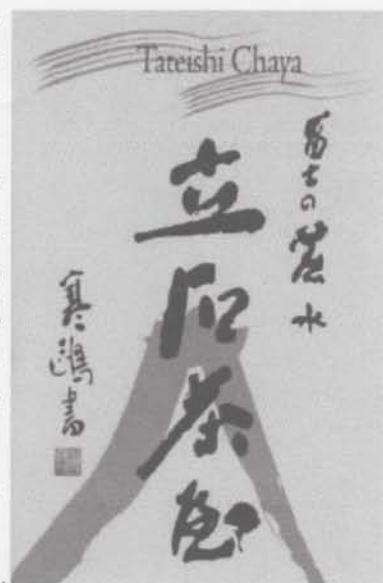 Tateishi Chaya
富士の 水
立石茶屋
書